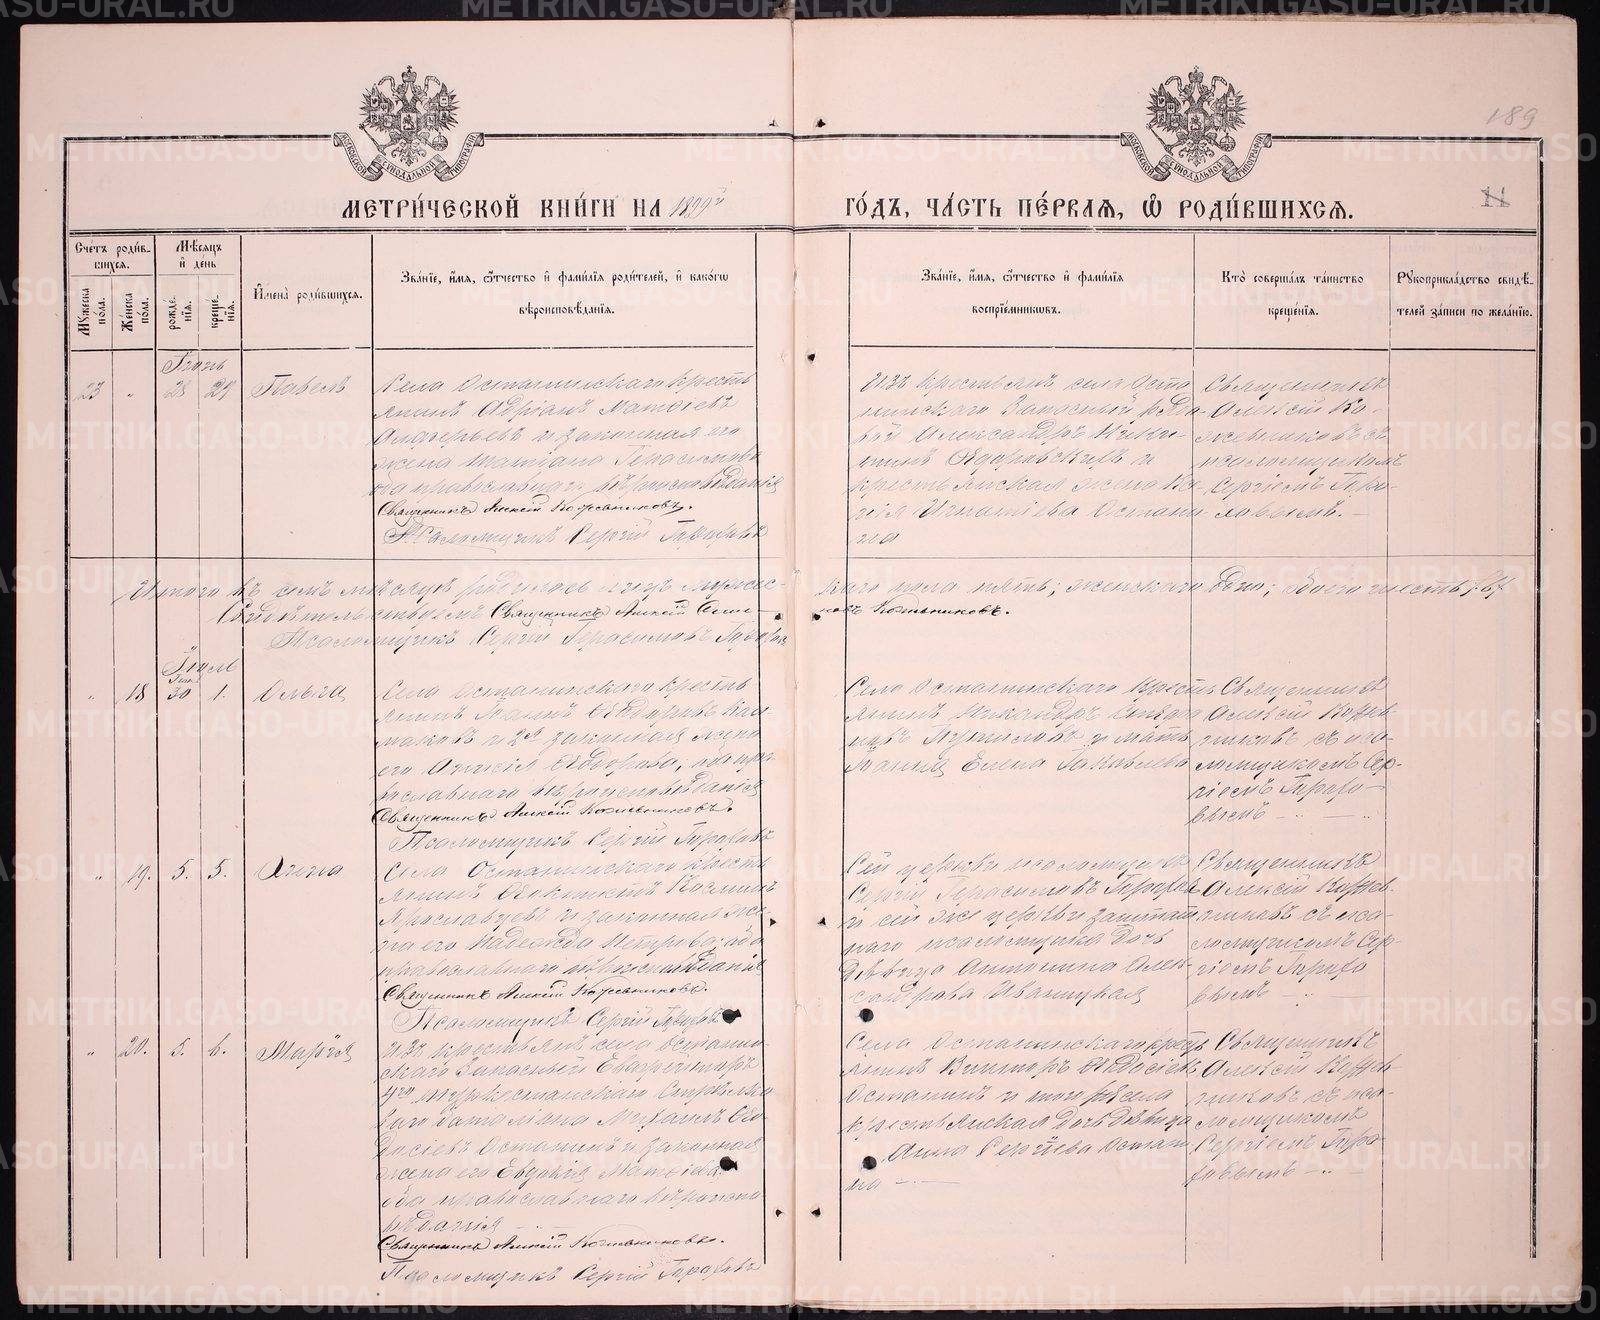 189
11
МОСКОВСКОЙ СѴНОДАЛЬНОЙ ТИПОГРАФІИ
МОСКОВСКОЙ СѴНОДАЛЬНОЙ ТИПОГРАФІИ
МЕТРИ́ЧЕСКОЙ КНИ́ГИ НА 1899й
ГО́ДЪ, ЧА́СТЬ ПЕ́РВАЯ, Ѽ РОДИ́ВШИХСЯ.
Сче́тъ роди́в-
шихся.
Мѣсяцъ
и҆ де́нь
Му́жеска пола.
Же́нска пола.
рожде́-
нїѧ.
креще́-
нїѧ.
И҆мена̀ роди́вшихся.
Зва́нїе, и҆́мѧ, ѻ҆́тчество и҆ фами́лїѧ роди́телей, и҆ како́гѡ
вѣроисповѣ́данїѧ.
Зва́нїе, и҆́мѧ, ѻ҆́тчество и҆ фами́лїѧ
воспрїе́мникѡвъ.
Кто̀ соверша́лъ та́инство
креще́нїѧ.
Рꙋкоприкла́дство свидѣ́-
телей за́писи по жела́нїю.
Іюнь
23 " 28 29 Павелъ
Села Останинскаго кресть
янинъ Адріанъ Матѳіевъ
и законная его
жена Татіана Герасимова
оба православнаго вѣроисповѣданія
Священникъ Алексій Кожевниковъ.
Псаломщикъ Сергій
Изъ крестьянъ села Оста
нинскаго Запасный рядо
вой Александръ Ники-
тинъ и
крестьянская жена
Игнатіева Остани
на
Священникъ
Алексій Ко-
жевниковъ съ
псаломщикомъ
Сергіемъ
Итого въ семъ мѣсяцѣ родилось лицъ мужес-
каго пола пять; женскаго одно; обоего шесть;
Свидѣтельствуемъ Священникъ Алексій
Кожевниковъ.
Псаломщикъ Сергій Герасимовъ
Іюль
" 18 30 1. Ольга
Села Останинскаго кресть
янинъ Іоаннъ Ѳеодоровъ Кал-
маковъ и 2я законная жена
его Анисія Ѳеодорова, оба пра-
вославнаго вѣроисповѣданія
Священникъ Алексій Кожевниковъ.
Псаломщикъ Сергій
Села Останинскаго кресть
янинъ Никандръ
и мать
Іоанна Елена Іаковлева
Священникъ
Алексій Кожев-
никовъ съ пса-
ломщикомъ Сер-
гіемъ
" 19. 5. 5. Анна
Села Останинскаго кресть
янинъ
Ярославцевъ и законная же-
на его Надежда Петрова; оба
православнаго вѣроисповѣданія
Священникъ Алексій Кожевниковъ.
Псаломщикъ Сергій
Сей церкви псаломщикъ
Сергій Герасимовъ
и сей же церкви заштат
наго псаломщика дочь
дѣвица Антонина Алек-
сандрова Иваницкая
Священникъ
Алексій Кожев-
никовъ съ пса-
ломщикомъ Сер-
гіемъ
" 20. 5. 6. Марія
Изъ крестьянъ села Останин-
скаго Запасный Ефрейторъ
4го Туркестанскаго Стрѣлко
ваго баталіона Михаилъ Ѳео
досіевъ Останинъ и законная
жена его Евдокія Матѳіева,
оба православнаго вѣроиспо
вѣданія
Священникъ Алексій Кожевниковъ.
Псаломщикъ Сергій
Села Останинскаго кресть
янинъ Викторъ Ѳеодосіевъ
Останинъ и того же села
крестьянская дочь дѣвица
Анна Сергіева Остани
на
Священникъ
Алексій Кожев-
никовъ съ пса-
ломщикомъ
Сергіемъ
METRIKI.GASO-URAL.RU